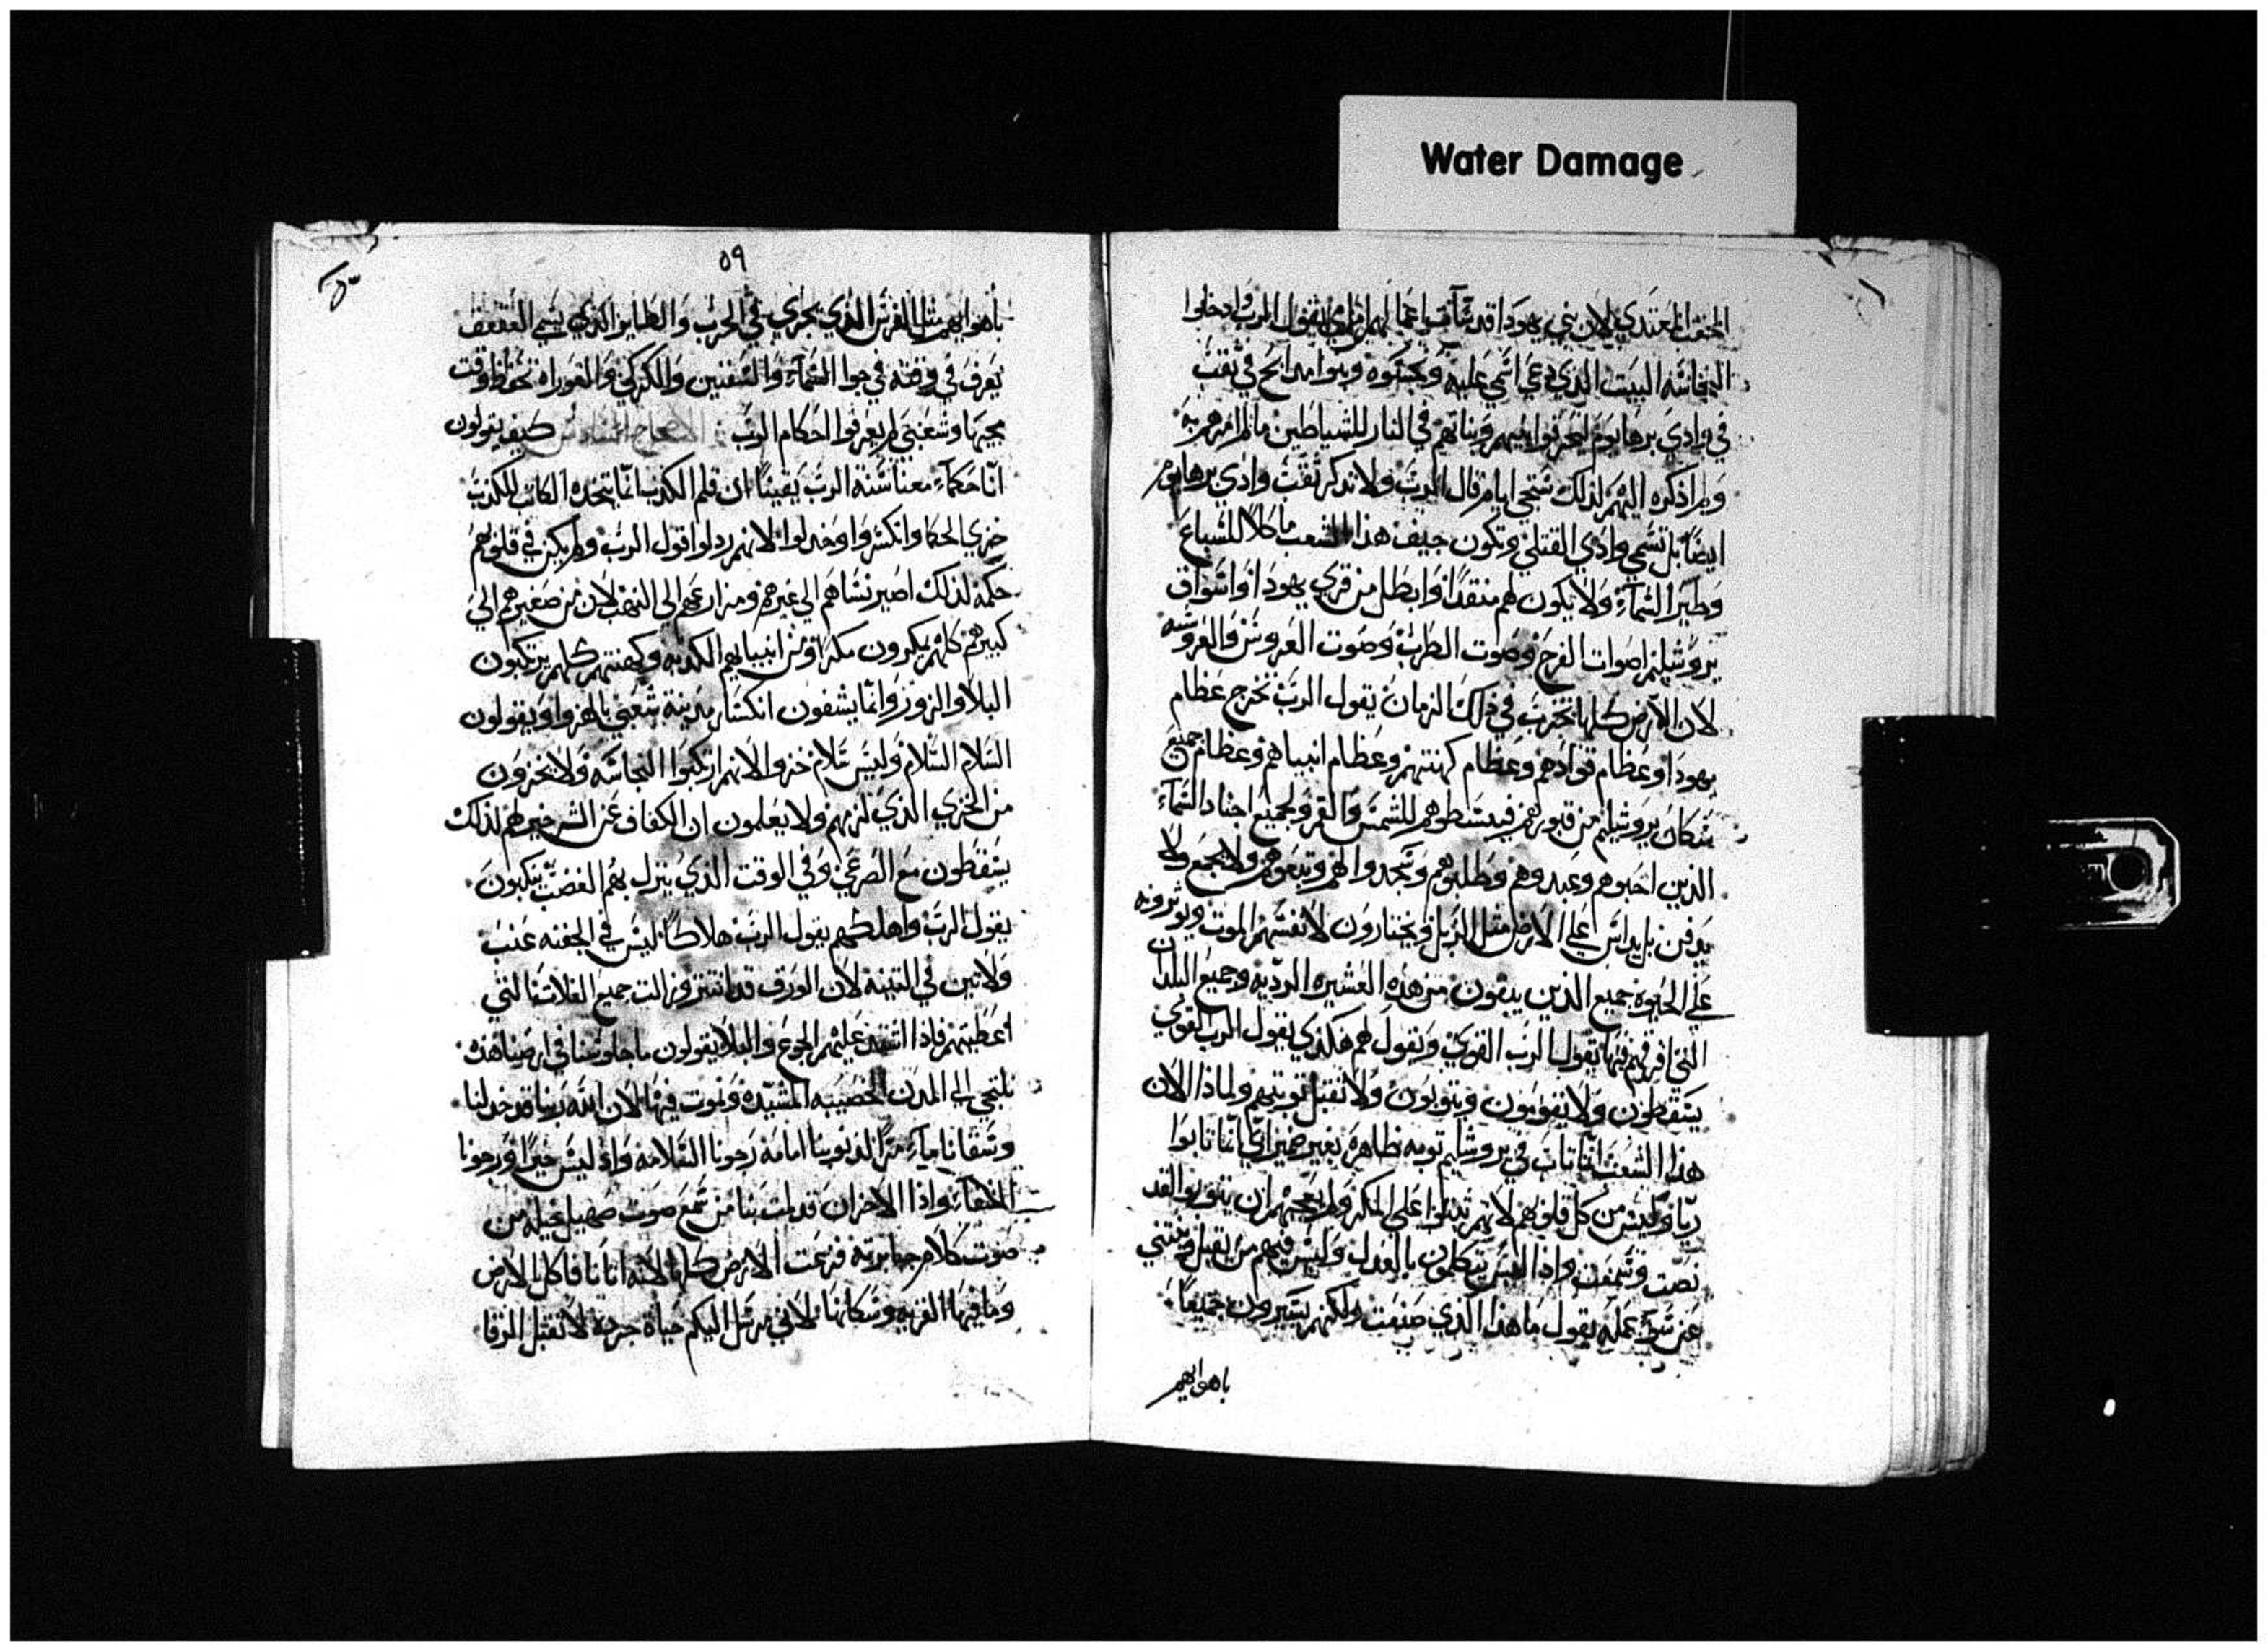 Water Damage
الحقب المعتدي لان بني يهودا قد سآت اعمالهم امامي يقول الرب وادخلوا
النجاسه البيت الذي دعي اسمي عليه ونجسوه وبنوا مدابح في ثقب
في وادي برهانوم ليحرقوا بنيهم وبناتهم في النار للشياطين مالم امرهم به
ولم اذكره اليهم لذلك ستجي ايام قال الرب ولا تدكر ثقب وادي برهانوم
ايضًا بل تسمي وادي القتلي وتكون جيف هذا الشعب ماكلًا للسباع
وطير السمآء ولا يكون لهم منقدًا وابطل من قري يهودا واسواق
يروشليم اصوات الفرح وصوت الطرب وصوت العروس والعروسه
لان الارض كلها تخرب في ذلك الزمان يقول الرب تخرج عظام
يهودا وعظام قوادهم وعظام كهنتهم وعظام انبياهم وعظام جميع
سكان يروشليم من قبورهم فيبسطوهم للشمس والقمر ولجميع اجناد السمآء
الذين احبوهم وعبدوهم وطلبوهم وسجدوا لهم وتبعوهم ولا يجمع ولا
يدفن بل يداس علي الارض مثل الزبل ويختارون لانفسهم الموت ويوثرونه
علي الحيوة جميع الذين يبقون من هذه العشيره الرديه وجميع البلدان
التي افرقهم فيها يقول الرب القوي وتقول لهم هكذي يقول الرب القوي
يسقطون ولا يقومون ويتوبون ولا تقبل توبتهم ولماذا الان
هذا الشعب انما تاب في يروشليم توبه ظاهره بغير ضمير اي انما تابوا
ريآ وليس من كل قلوبهم لانهم ثبتوا علي المكر ولم يعجبهم ان يتوبوا لقد
نصت وسمعت واذا ليس يتكلمون بالعدل وليس فيهم من يقبل وينثني
عن سوء عمله يقول ما هذا الذي صنعت ولكنهم يسيرون جميعًا
باهوايهم
٥٩
باهوايهم مثل الفرس الذي يجري في الحرب والطاير الذي يسمي العقعق
يعرف في وقته في جوا السمآء والشفنين والكركي والقوراه تحفظ اوقت
مجيها وشعبي لم يعرفوا احكام الرب الاصحاح السادس كيف يقولون
انا حكمآء معنا سنة الرب يقينًا ان قلم الكدب انما يتخده الكاتب للكدب
خزي الحكما وانكسروا وخدلوا لانهم ردلوا قول الرب ولم يكن في قلوبهم
حكمه لذلك اصير نساهم الي غيرهم ومزارعهم الي النهب لان من صغيرهم الي
كبيرهم كلهم يمكرون مكرًا ومن انبيايهم الكدبه وكهنتهم كلهم يرتكبون
البلا والزور وانما يشفون انكسار مدينة شعبي بالهزوا ويقولون
السلام السلام وليس سلام خزوا لانهم ارتكبوا النجاسه ولا يخزون
من الخزي الذي لزمهم ولا يعلمون ان الكفاف عن الشر خير لهم لذلك
يسقطون مع الصرعي وفي الوقت الذي ينزل بهم الغضب ينكبون
يقول الرب واهلكهم يقول الرب هلاكًا ليس في الجفنه عنب
ولا تين في التينه لان الورق قد انتثر وزالت جميع الغلات التي
اعطيتهم فاذا اشتد عليهم الجوع والبلا يقولون ما جلوسنا في ارضنا هذه
نلتجي الي المدن الخصيبه المشيده ونموت فيها لان الله ربنا قد خدلنا
وسقانا مآء مرًا لذنوبنا امامه رجونا السلامه واذ ليس خيرًا ورجونا
الشفآء واذا الاحزان قد لمت بنا من سمع صوت صهيل خيله من
صوت كلام جبابرته فزعت الارض كلها لانه اتانا فاكل الارض
وما فيها القريه وسكانها لاني مرسل اليكم حياة جرده لا تقبل الرقا